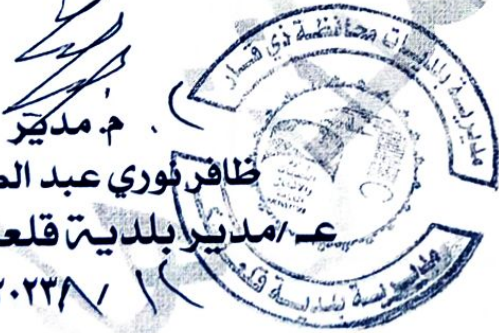 م. مدير
ظافر نوري عبد
عـ/مدير بلدية
٢٠٢٣/ /
مديرية بلديات محافظة ذي قار
مديرية بلدية